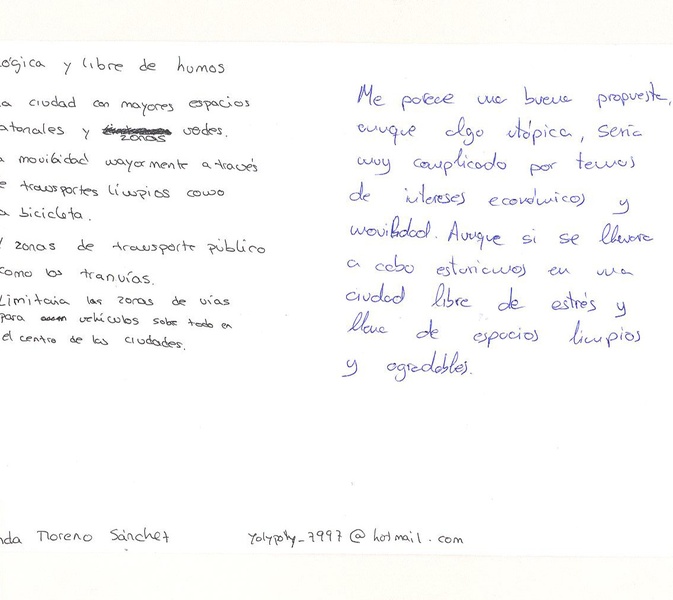 ógica y libre de humos
a ciudad con mayores espacios
atonales y zonas vedes.
a movilidad mayormente a través
e transportes límpios como
a bicicleta.
y zonas de transporte público
como los tranvías.
Limitaria las zonas de vias
para vehículos sobre todo en
el centro de las ciudades.
Me parece una buena propuesta,
aunque algo utópica, seria
muy complicado por temas
de intereses económicos y
movilidad. Aunque si se llevara
a cabo estariamos en una
ciudad libre de estrés y
llena de espacios limpios
y agradables.
nda Moreno Sánchez
@ hotmail.com